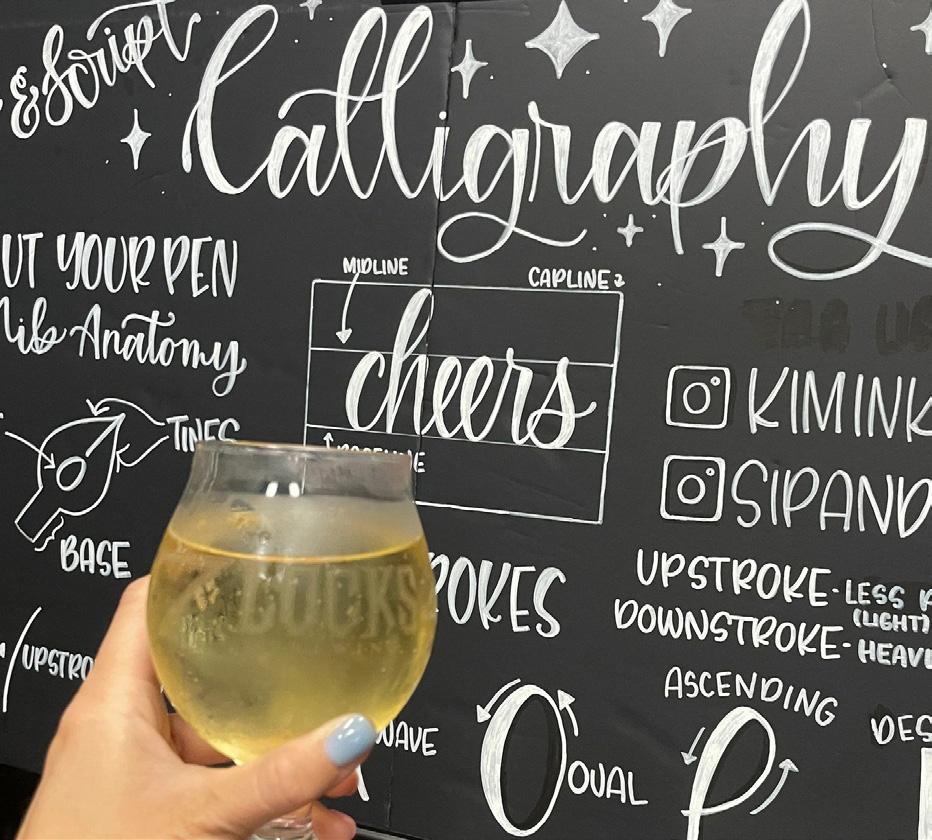 & Script
Calligraphy
UT YOUR PEN
Nib Anatomy
TINES
BASE
MIDLINE
CAPLINE
cheers
KIMINK
SIPAND
OKES
UPSTROKE - LESS
(LIGHT)
DOWNSTROKE - HEAV
UPSTRO
WAVE
OVAL
ASCENDING
DES